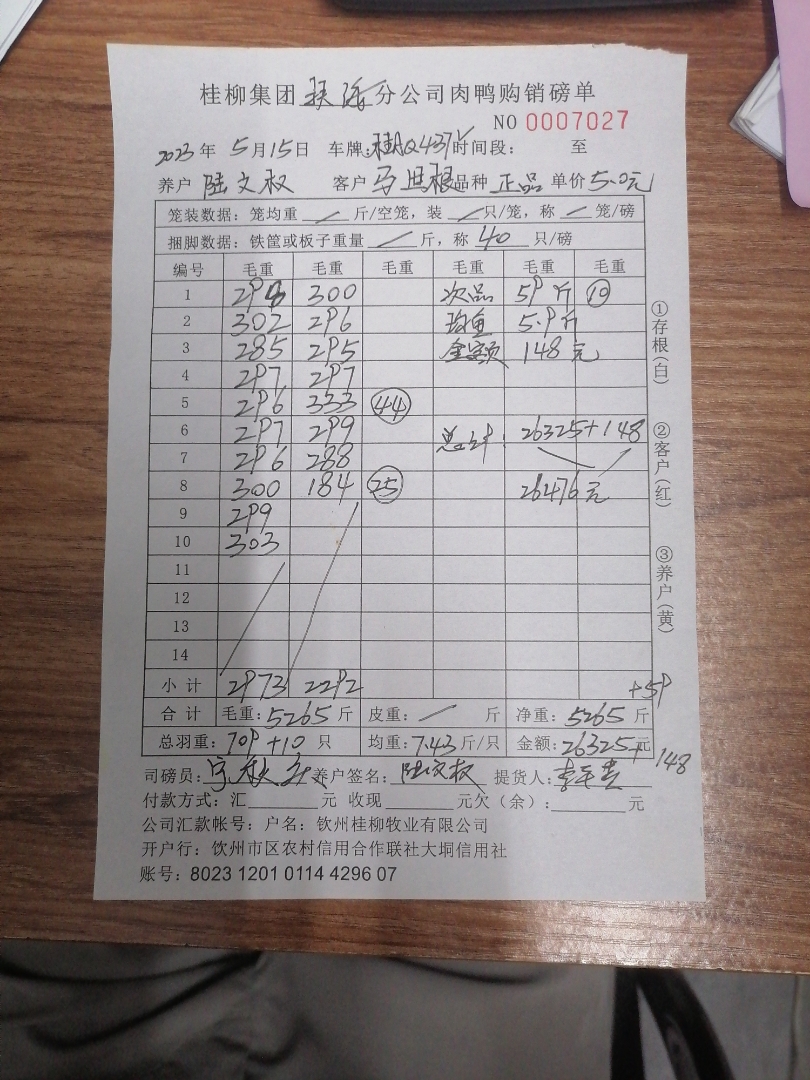 桂柳集团扶绥分公司肉鸭购销磅单
NO 0007027
2023年5月15日 车牌:桂AQ437V 时间段: 至
养户 陆文权 客户 马世根 品种 正品 单价 5.0元
笼装数据:笼均重 / 斤/空笼,装 / 只/笼,称 / 笼/磅
捆脚数据:铁筐或板子重量 / 斤,称 40 只/磅
编号 毛重 毛重 毛重 毛重 毛重 毛重
1 298 300 次品 59斤 ⑩
2 302 296 均重 5.9斤
3 285 295 金额 148元
4 297 297
5 296 333 ㊹
6 297 299 总计: 26325+148
7 296 288
8 300 184 ㉕ 26476元
9 299
10 303
11
12
13
14
小计 2973 2292 +59
合计 毛重:5265斤 皮重: / 斤 净重:5265斤
总羽重:709+10只 均重:7.43斤/只 金额:26325元+148
司磅员: 养户签名:陆文权 提货人:
付款方式:汇 元 收现 元欠(余): 元
公司汇款帐号:户名:钦州桂柳牧业有限公司
开户行:钦州市区农村信用合作联社大垌信用社
账号:8023 1201 0114 4296 07
①存根(白)
②客户(红)
③养户(黄)